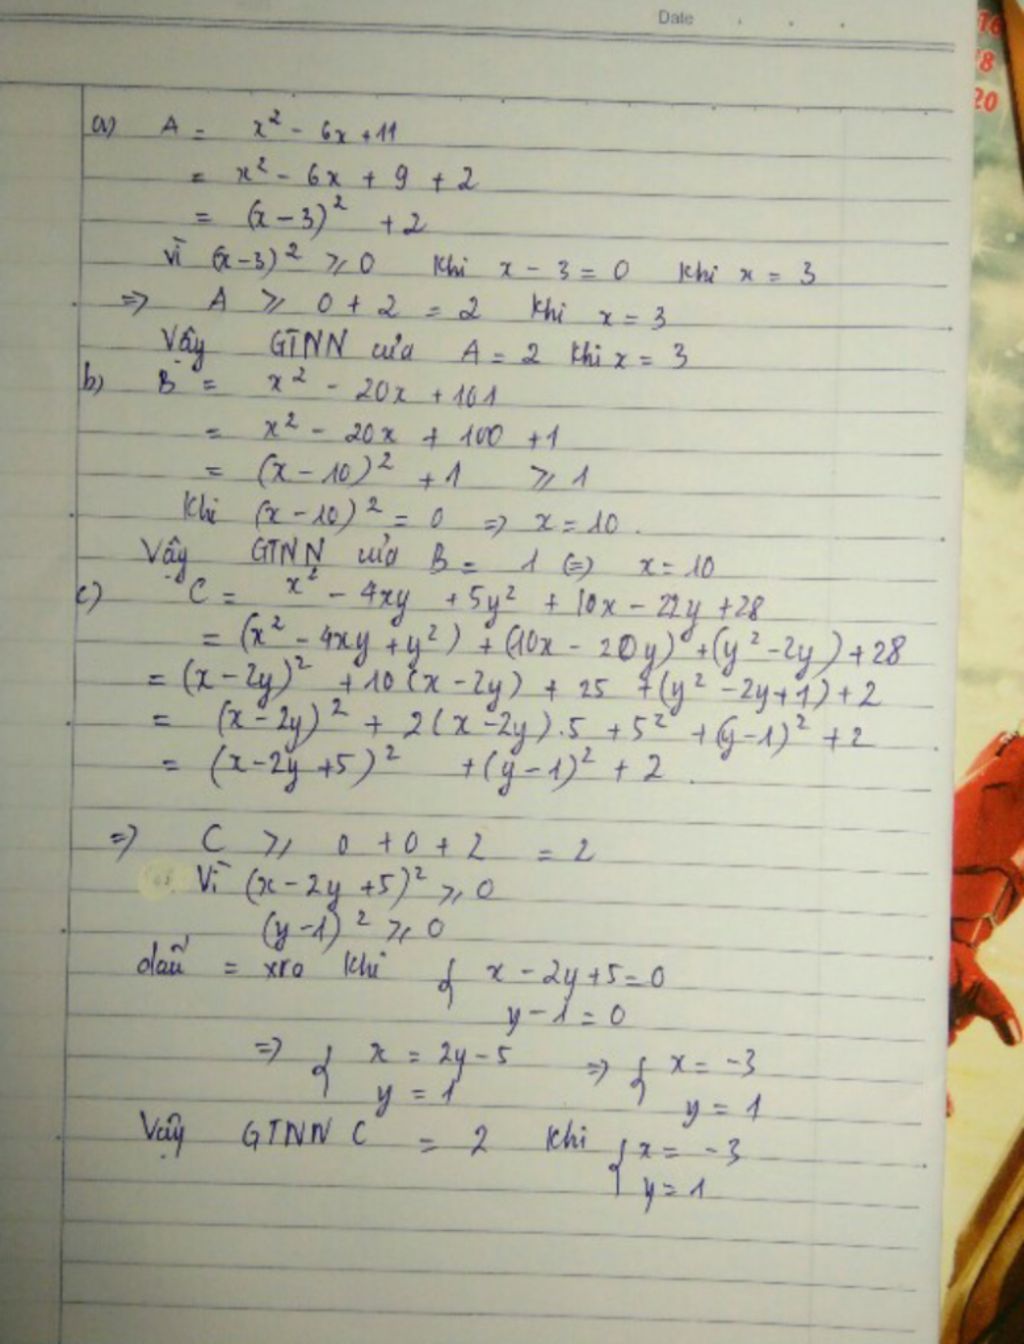 Date
16
18
20
a) A = x² - 6x + 11
= x² - 6x + 9 + 2
= (x - 3)² + 2
Vì (x-3)² ≥ 0 khi x - 3 = 0 khi x = 3
=> A ≥ 0 + 2 = 2 khi x = 3
Vậy GTNN của A = 2 khi x = 3
b) B = x² - 20x + 101
= x² - 20x + 100 + 1
= (x - 10)² + 1 ≥ 1
Khi (x - 10)² = 0 => x = 10.
Vậy GTNN của B = 1 (=) x = 10
c) C = x² - 4xy + 5y² + 10x - 22y + 28
= (x² - 4xy + y²) + (10x - 20y) + (y² - 2y) + 28
= (x - 2y)² + 10(x - 2y) + 25 + (y² - 2y + 1) + 2
= (x - 2y)² + 2(x - 2y).5 + 5² + (y - 1)² + 2
= (x - 2y + 5)² + (y - 1)² + 2.
=> C ≥ 0 + 0 + 2 = 2
Vì (x - 2y + 5)² ≥ 0
(y - 1)² ≥ 0
dấu = xra khi { x - 2y + 5 = 0
y - 1 = 0
=> { x = 2y - 5 => { x = -3
y = 1 y = 1
Vậy GTNN C = 2 khi { x = -3
y = 1